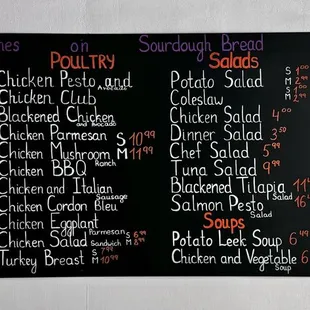 on Sourdough Bread
POULTRY
Chicken Pesto and Avocado
Chicken Club
Blackened Chicken and Avocado
Chicken Parmesan S 10 99
Chicken Mushroom M 11 99
Chicken BBQ Ranch
Chicken and Italian Sausage
Chicken Cordon Bleu
Chicken Eggplant Parmesan
Chicken Salad Sandwich S 6.99 M 8.99
Turkey Breast S 7.99 M 10.99
Salads
Potato Salad S 1 00 M 2 99
Coleslaw S 1 00 M 2 99
Chicken Salad 4 00
Dinner Salad 3 50
Chef Salad 5 99
Tuna Salad 9 99
Blackened Tilapia Salad 11
Salmon Pesto Salad 16
Soups
Potato Leek Soup 6
Chicken and Vegetable Soup 6